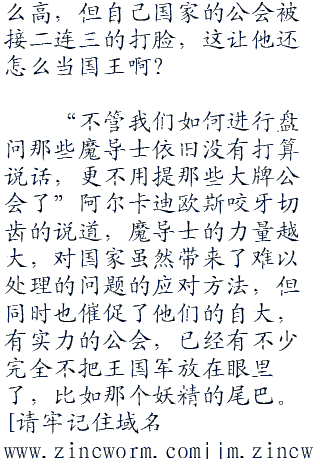 么高，但自己国家的公会被
接二连三的打脸，这让他还
怎么当国王啊？
“不管我们如何进行盘
问那些魔导士依旧没有打算
说话，更不用提那些大牌公
会了”阿尔卡迪欧斯咬牙切
齿的说道，魔导士的力量越
大，对国家虽然带来了难以
处理的问题的应对方法，但
同时也催促了他们的自大，
有实力的公会，已经有不少
完全不把王国军放在眼里
了，比如那个妖精的尾巴。
[请牢记住域名
www.zincworm.com||m.zincw